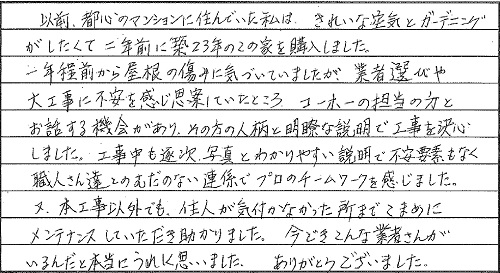 以前、都心のマンションに住んでいた私は、きれいな空気とガーデニング
がしたくて二年前に築23年のこの家を購入しました。
一年程前から屋根の傷みに気づいていましたが、業者選びや
大工事に不安を感じ思案していたところ コーホーの担当の方と
お話する機会があり、その方の人柄と明瞭な説明で工事を決心
しました。工事中も逐次、写真とわかりやすい説明で不安要素もなく
職人さん達とのむだのない連係でプロのチームワークを感じました。
又、本工事以外でも、住人が気付かなかった所までこまめに
メンテナンスしていただき助かりました。今どきこんな業者さんが
いるんだと本当にうれしく思いました。ありがとうございました。